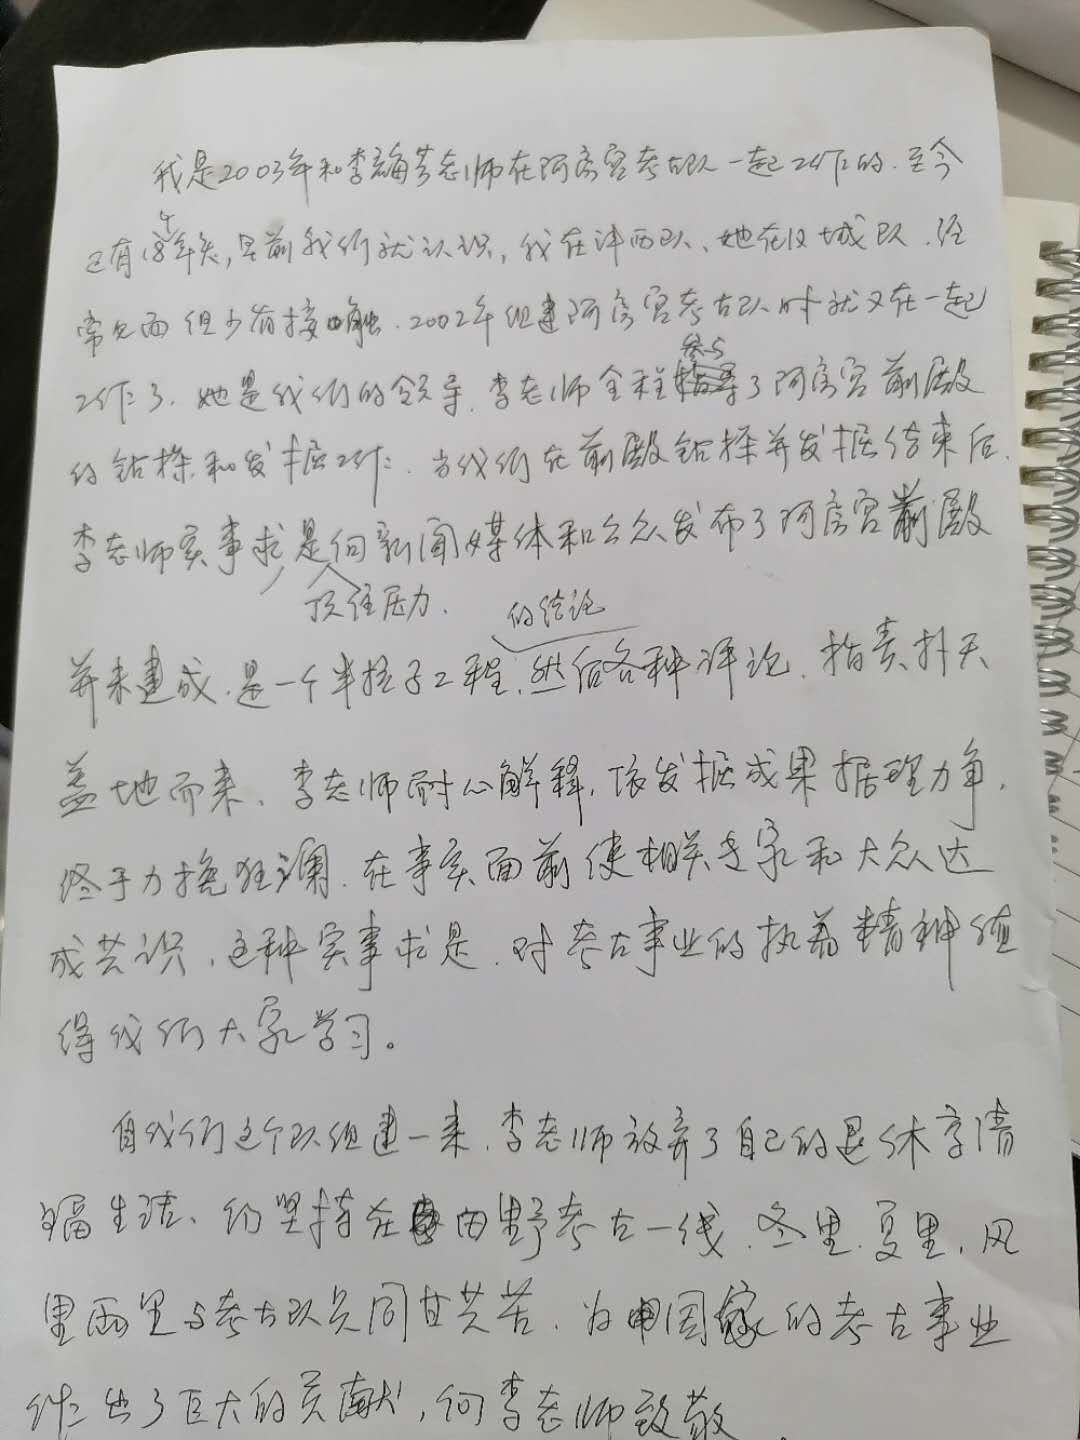 我是2003年和李毓芳老师在阿房宫考古队一起工作的.至今
已有18个年头,早前我们就认识,我在沣西队、她在汉城队.经
常见面但少有接触.2002年组建阿房宫考古队时就又在一起
工作了.她是我们的领导.李老师全程参与了阿房宫前殿
的钻探和发掘工作.当我们在前殿钻探并发掘结束后.
李老师实事求是向新闻媒体和公众发布了阿房宫前殿
顶住压力.
的结论
并未建成.是一个半拉子工程.然后各种评论.指责扑天
盖地而来、李老师耐心解释,依发掘成果据理力争.
终于力挽狂澜.在事实面前使相关专家和大众达
成共识.这种实事求是.对考古事业的执着精神值
得我们大家学习。
自我们这个队组建一来.李老师放弃了自己的退休享清
福生活、仍坚持在田野考古一线.冬里.夏里.风
里雨里与考古队员同甘共苦.为国家的考古事业
作出了巨大的贡献,向李老师致敬.